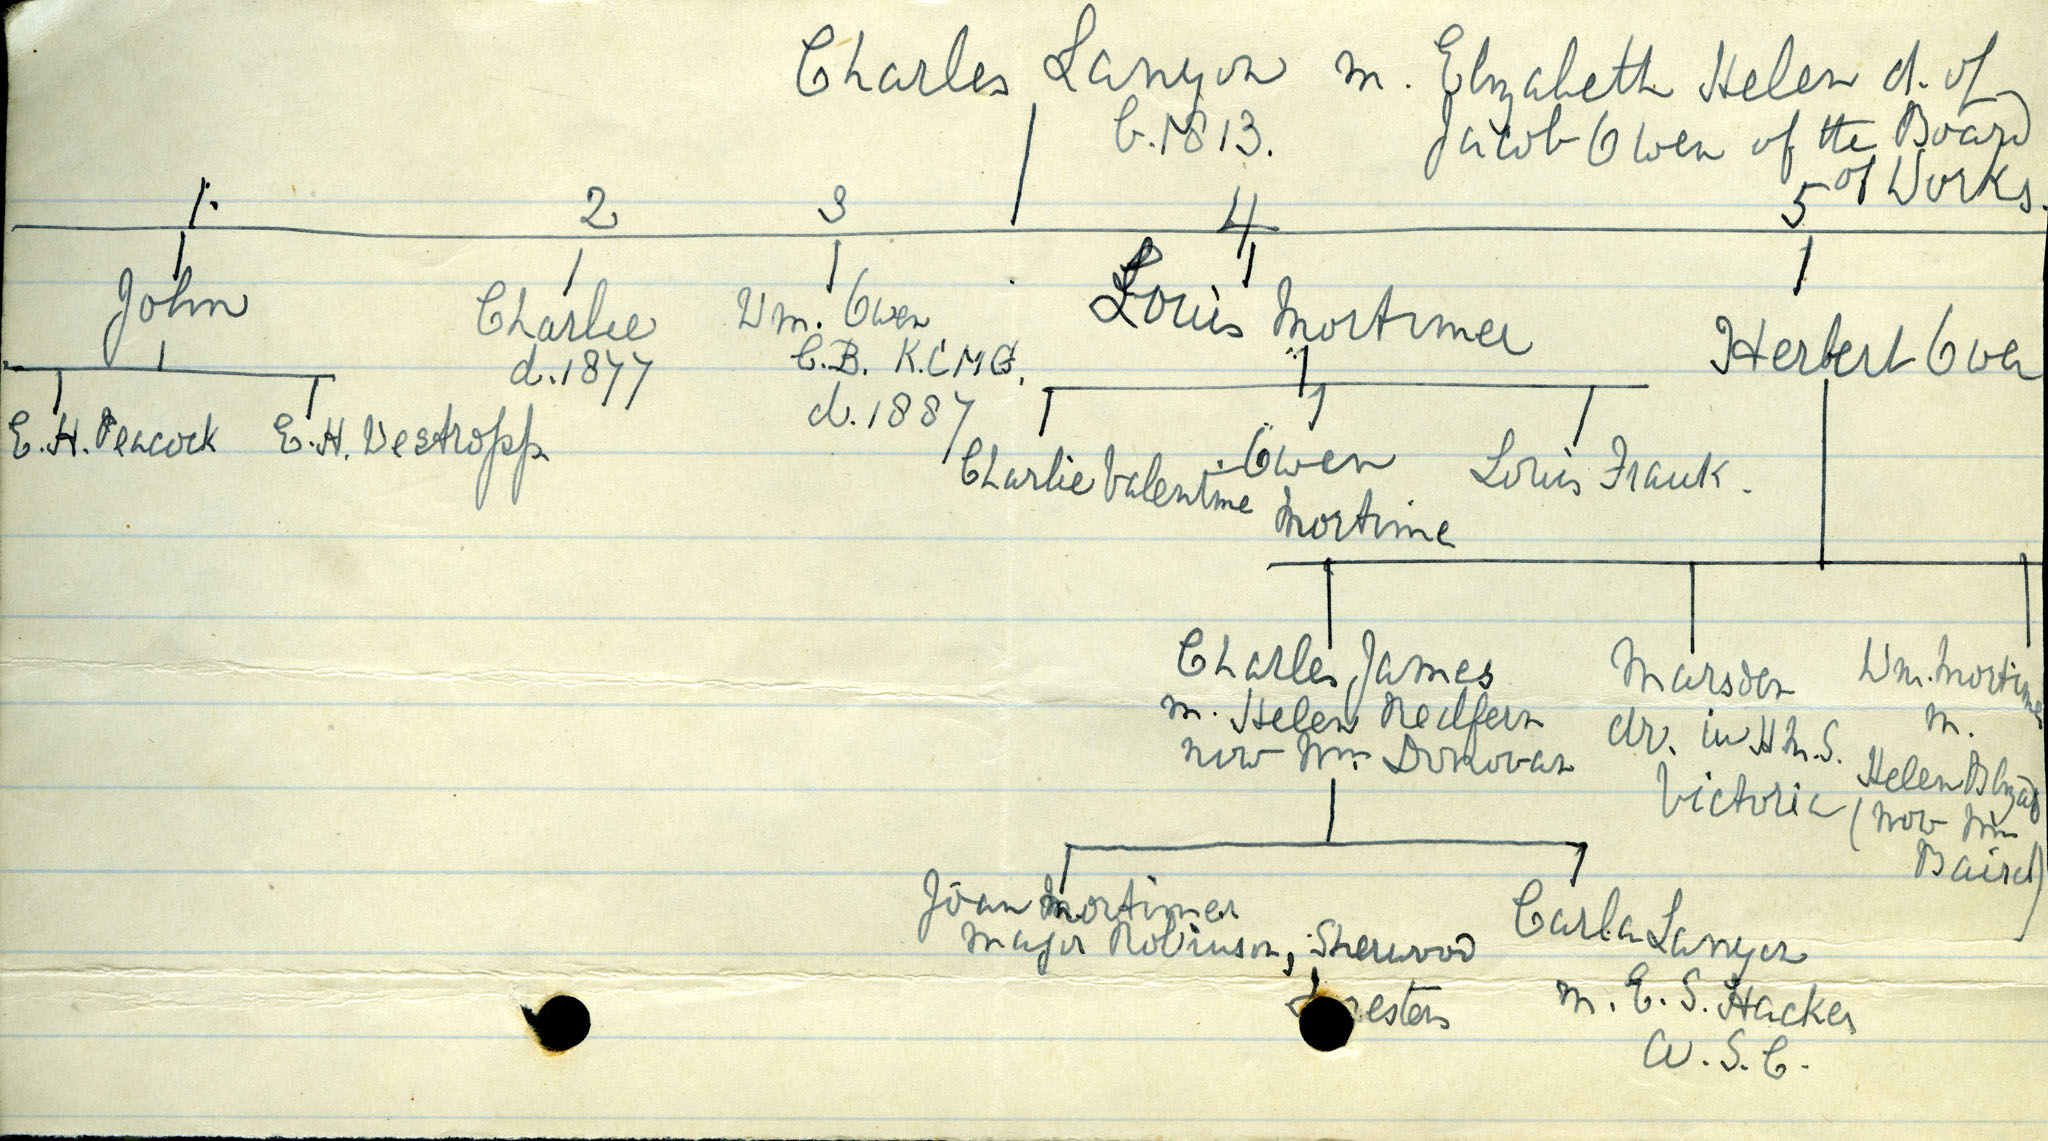 Charles Lanyon m. Elizabeth Helen d. of
b. 1813. Jacob Owen of the Board
of Works.
1. 2 3 4 5
John
Charlie
d. 1877
Wm. Owen
C.B. K.C.M.G.
d. 1887
Louis Mortimer
Herbert Owen
E.H. Peacock
E.H. Westropp
Charlie Valentine
Owen
Mortimer
Louis Frank.
Charles James
m. Helen Redfern
now Mrs. Donovan
Marsden
dr. in H.M.S.
Victoria
Wm. Mortimer
m.
Helen
(now Mrs
Baird)
Joan Mortimer
Major Robinson, Sherwood
Foresters
Carla Lanyon
m. E. S. Hacker
A.S.C.